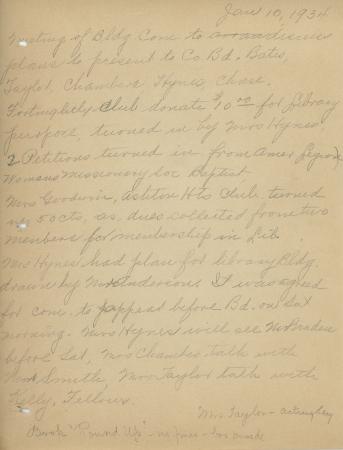 Jan 10, 1934
Meeting of Bldg Com to discuss
plans to present to Co. Bd. Bates,
Taylor, Chambers, Hynes, Chase.
Fortnightly Club donate $10.00 for Library
purpose, turned in by Mrs Hynes.
2 Petitions turned in from Amer. Legion
Womens Missionary Soc Baptist
Mrs Goodwin, Ashton Hts Club turned
in 50 cts, as dues collected from two
members for membership in Lib.
Mrs Hynes had plan for library Bldg.
drawn by Mr Anderson. It was agreed
for com. to appear before Bd. on Sat
morning. Mrs Hynes will see Mr
before Sat, Mrs Chambers talk with
Smith, Mrs Taylor talk with
Kelly, Fellows.
Mrs Taylor - act
Book "Round Up" -